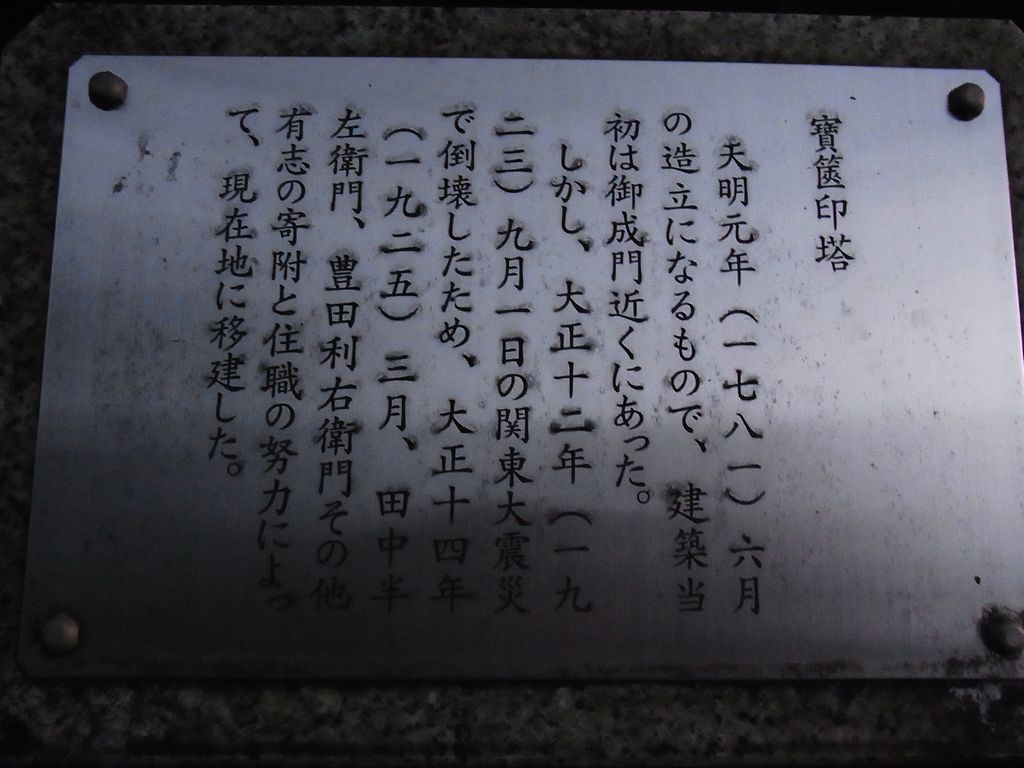 寶篋印塔
天明元年（一七八一）六月
の造立になるもので、建築当
初は御成門近くにあった。
しかし、大正十二年（一九
二三）九月一日の関東大震災
で倒壊したため、大正十四年
（一九二五）三月、田中半
左衛門、豊田利右衛門その他
有志の寄附と住職の努力によっ
て、現在地に移建した。